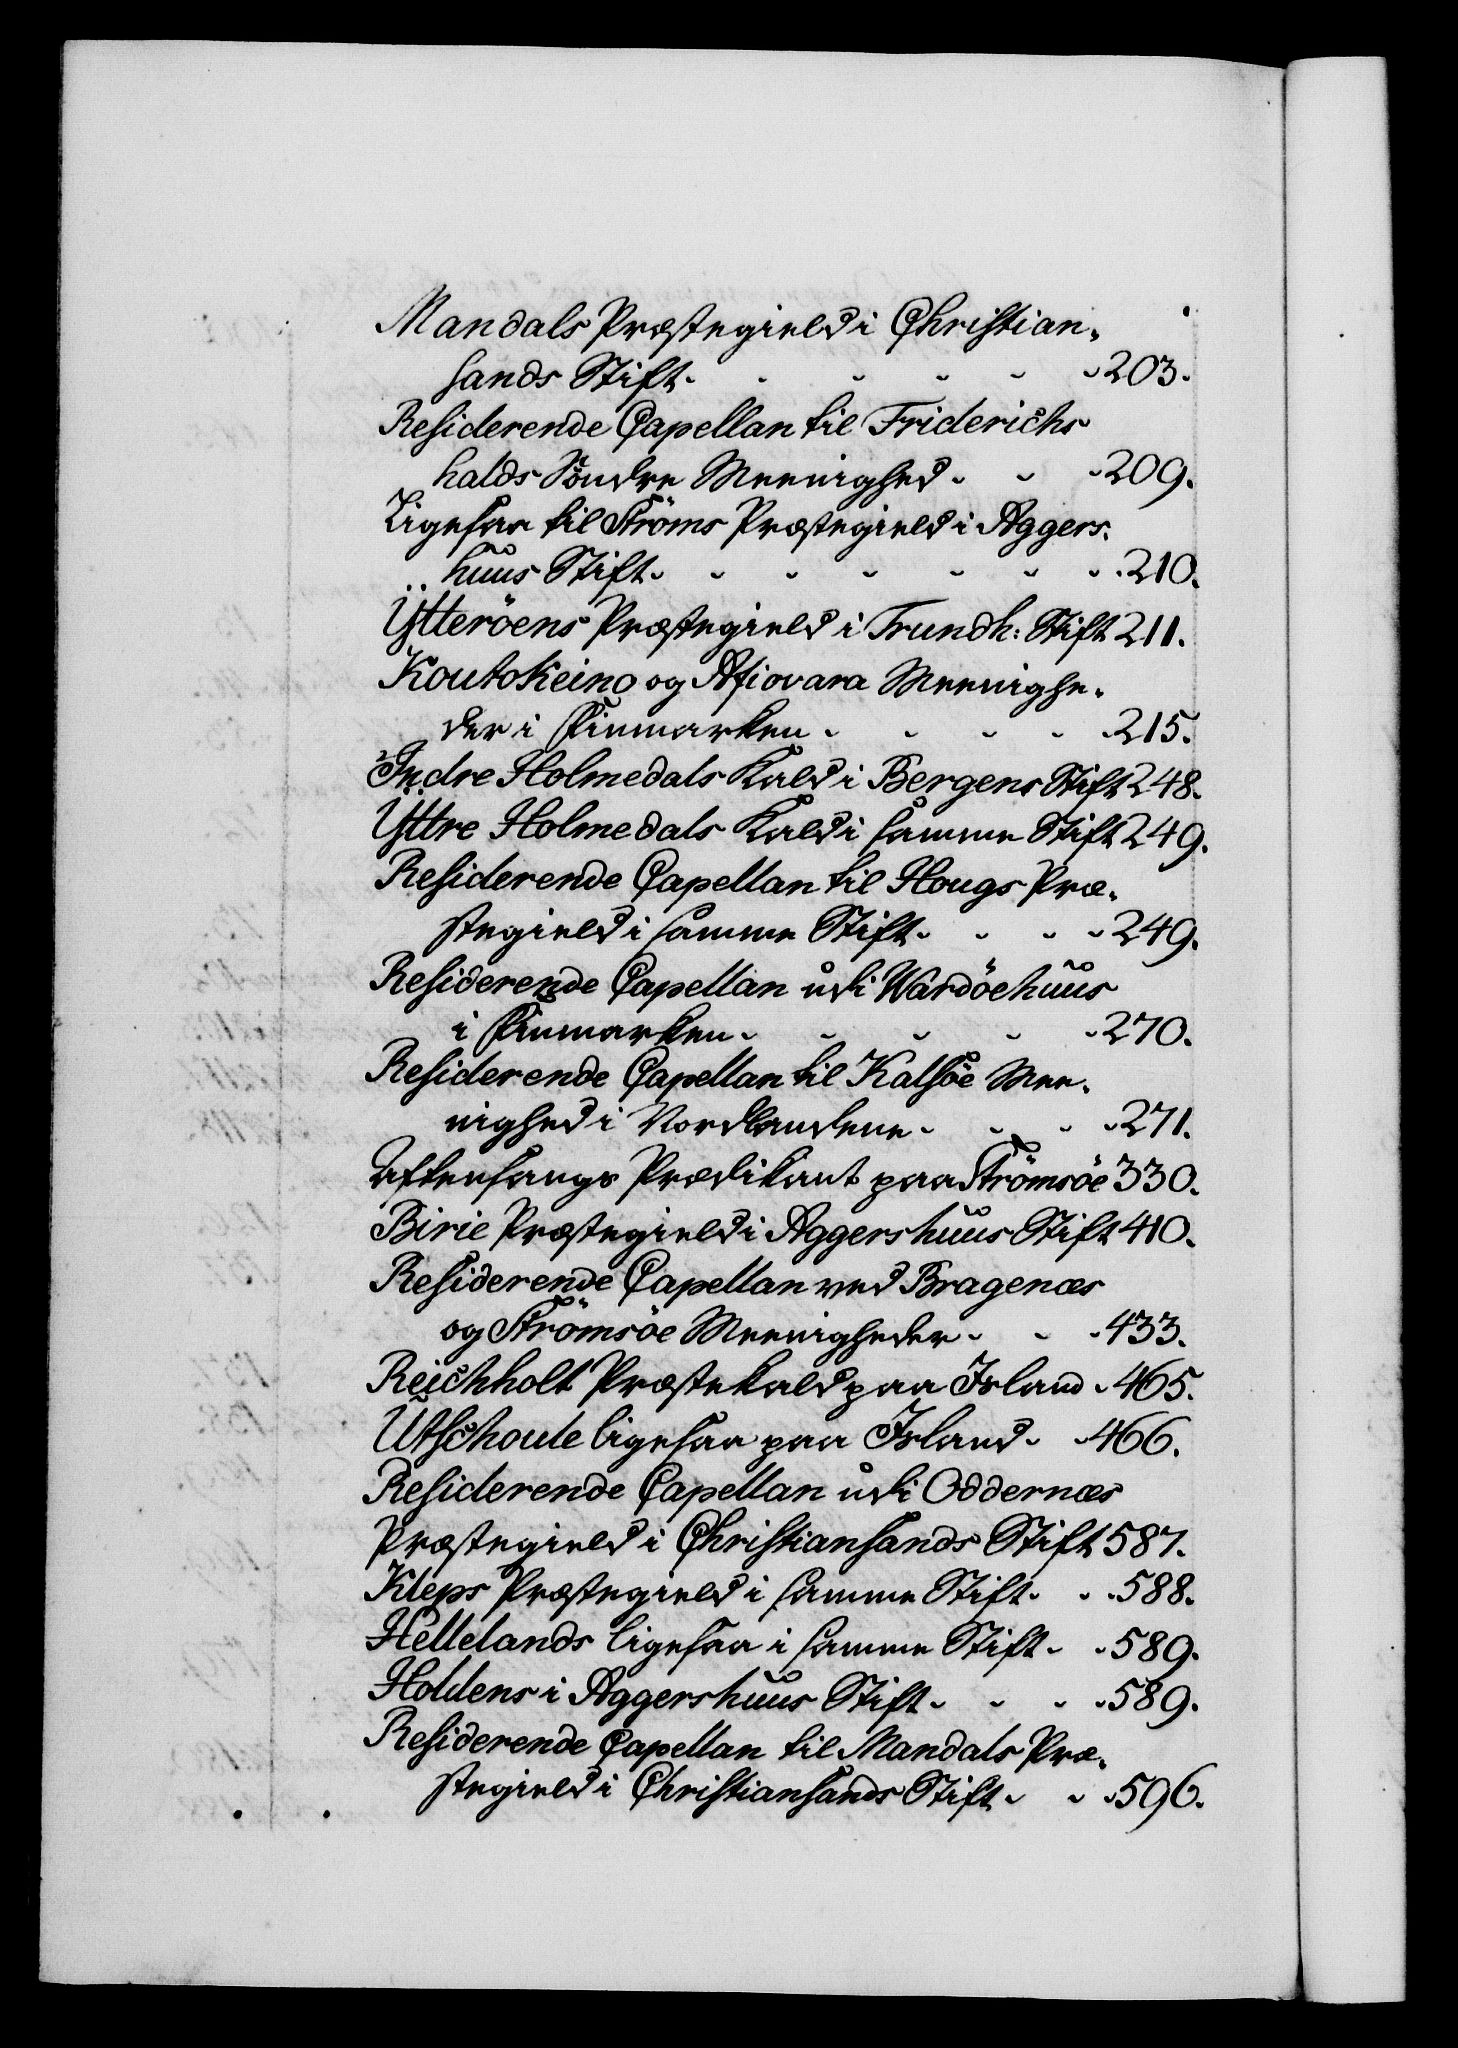 Mandals Præstegield i Christian-
sands Stift. 203.
Residerende Capellan til Friderichs
halds Söndre Meenighed 209.
Ligesaa til Ströms Præstegield i Aggers-
huus Stift 210.
Ytteröens Præstegield i Trundh: Stift 211.
Koutokeino og Afiovara Meenighe-
der i Finmarken 215.
Indre Holmedals Kald i Bergens Stift 248.
Yttre Holmedals Kald i samme Stift 249.
Residerende Capellan til Hougs Præ-
stegield i samme Stift 249.
Residerende Capellan udi Wardöehuus
i Finmarken 270.
Residerende Capellan til Kalsöe Mee-
nighed i Nordlandene 271.
Aftensangs Prædikant paa Strömsöe 330.
Birie Præstegield i Aggershuus Stift 410.
Residerende Capellan ved Bragenæs
og Strömsöe Meenigheder 433.
Reichholt Præstekald paa Island 465.
Utschoule ligesaa paa Island 466.
Residerende Capellan udi Oddernæs
Præstegield i Christiansands Stift 587.
Kleps Præstegield i samme Stift 588.
Hellelands ligesaa i samme Stift 589.
Holdens i Aggershuus Stift 589.
Residerende Capellan til Mandals Præ-
stegield i Christiansands Stift 596.